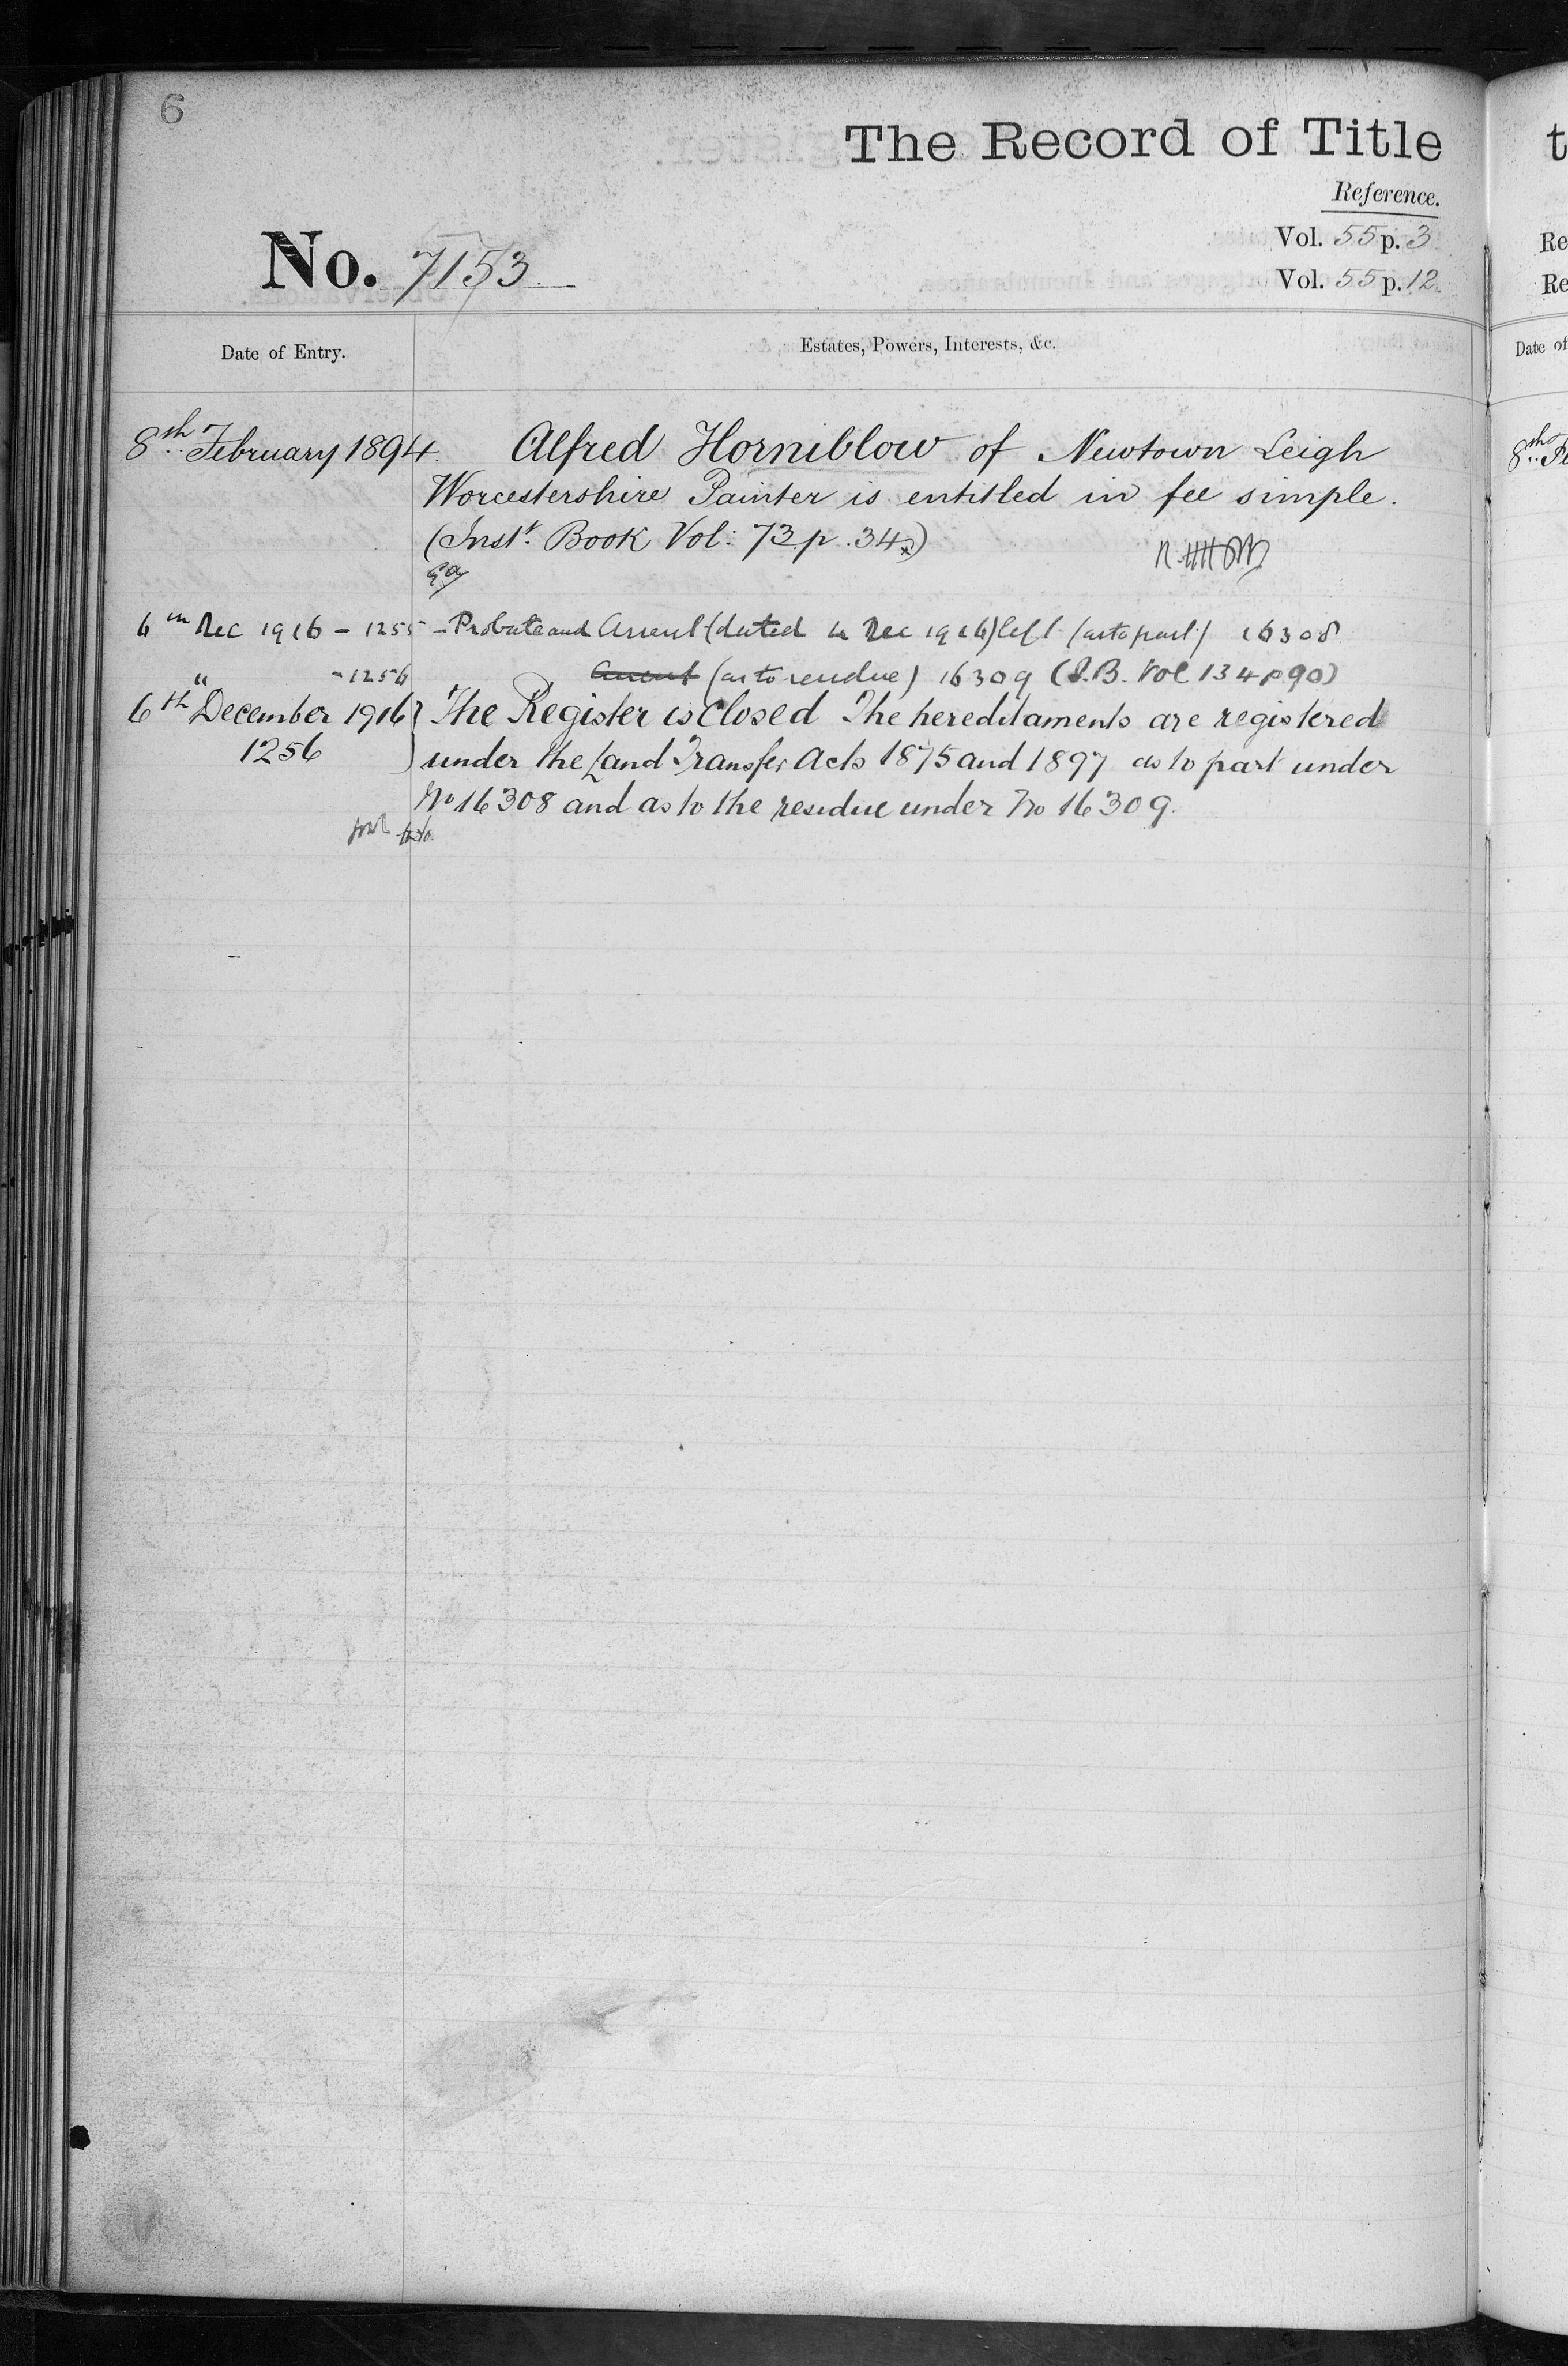 6
The Record of Title
Reference.
No. 7153
Vol. 55 p. 3
Vol. 55 p. 12.
Date of Entry.
Estates, Powers, Interests, &c.
8th February 1894. Alfred Horniblow of Newtown Leigh
Worcestershire Painter is entitled in fee simple.
(Inst. Book Vol: 73 p. 34)
6th Dec 1916 - 1255 - Probate and Assent (dated 4 Dec 1916) left (as to part) 16308
" - 1256 Assent (as to residue) 16309 (I.B. Vol 134 p 90)
6th December 1916 } The Register is Closed The hereditaments are registered
1256 under the Land Transfer Acts 1875 and 1897 as to part under
No 16308 and as to the residue under No 16309.
t
Re
Re
Date of
8th Fe